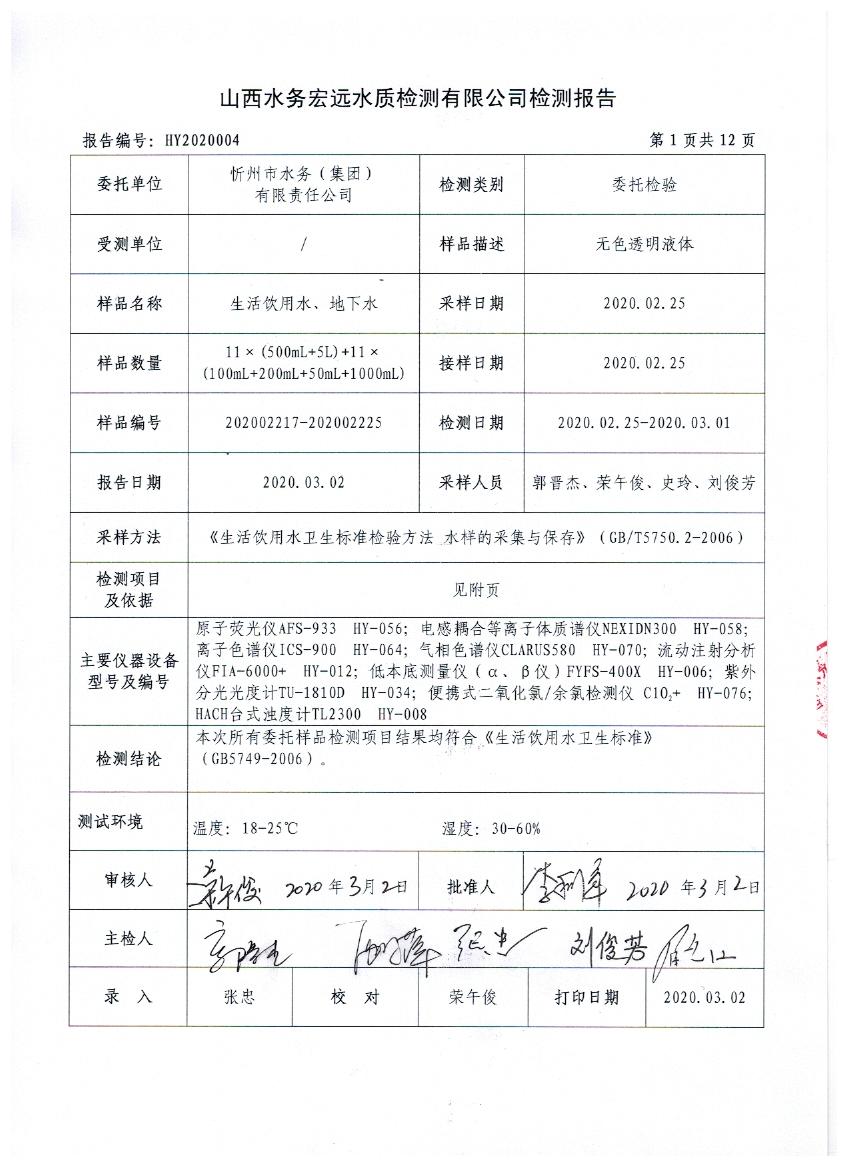 山西水务宏远水质检测有限公司检测报告
报告编号：HY2020004
第 1 页共 12 页
委托单位
忻州市水务（集团）
有限责任公司
检测类别
委托检验
受测单位
/
样品描述
无色透明液体
样品名称
生活饮用水、地下水
采样日期
2020.02.25
样品数量
11×(500mL+5L)+11×
(100mL+200mL+50mL+1000mL)
接样日期
2020.02.25
样品编号
202002217-202002225
检测日期
2020.02.25-2020.03.01
报告日期
2020.03.02
采样人员
郭晋杰、荣午俊、史玲、刘俊芳
采样方法
《生活饮用水卫生标准检验方法 水样的采集与保存》（GB/T5750.2-2006）
检测项目
及依据
见附页
主要仪器设备
型号及编号
原子荧光仪AFS-933 HY-056；电感耦合等离子体质谱仪NEXIDN300 HY-058；
离子色谱仪ICS-900 HY-064；气相色谱仪CLARUS580 HY-070；流动注射分析
仪FIA-6000+ HY-012；低本底测量仪（α、β仪）FYFS-400X HY-006；紫外
分光光度计TU-1810D HY-034；便携式二氧化氯/余氯检测仪 ClO₂+ HY-076；
HACH台式浊度计TL2300 HY-008
检测结论
本次所有委托样品检测项目结果均符合《生活饮用水卫生标准》
（GB5749-2006）。
测试环境
温度：18-25℃
湿度：30-60%
审核人
荣午俊 2020年3月2日
批准人
2020年3月2日
主检人
张忠 刘俊芳
录 入
张忠
校 对
荣午俊
打印日期
2020.03.02